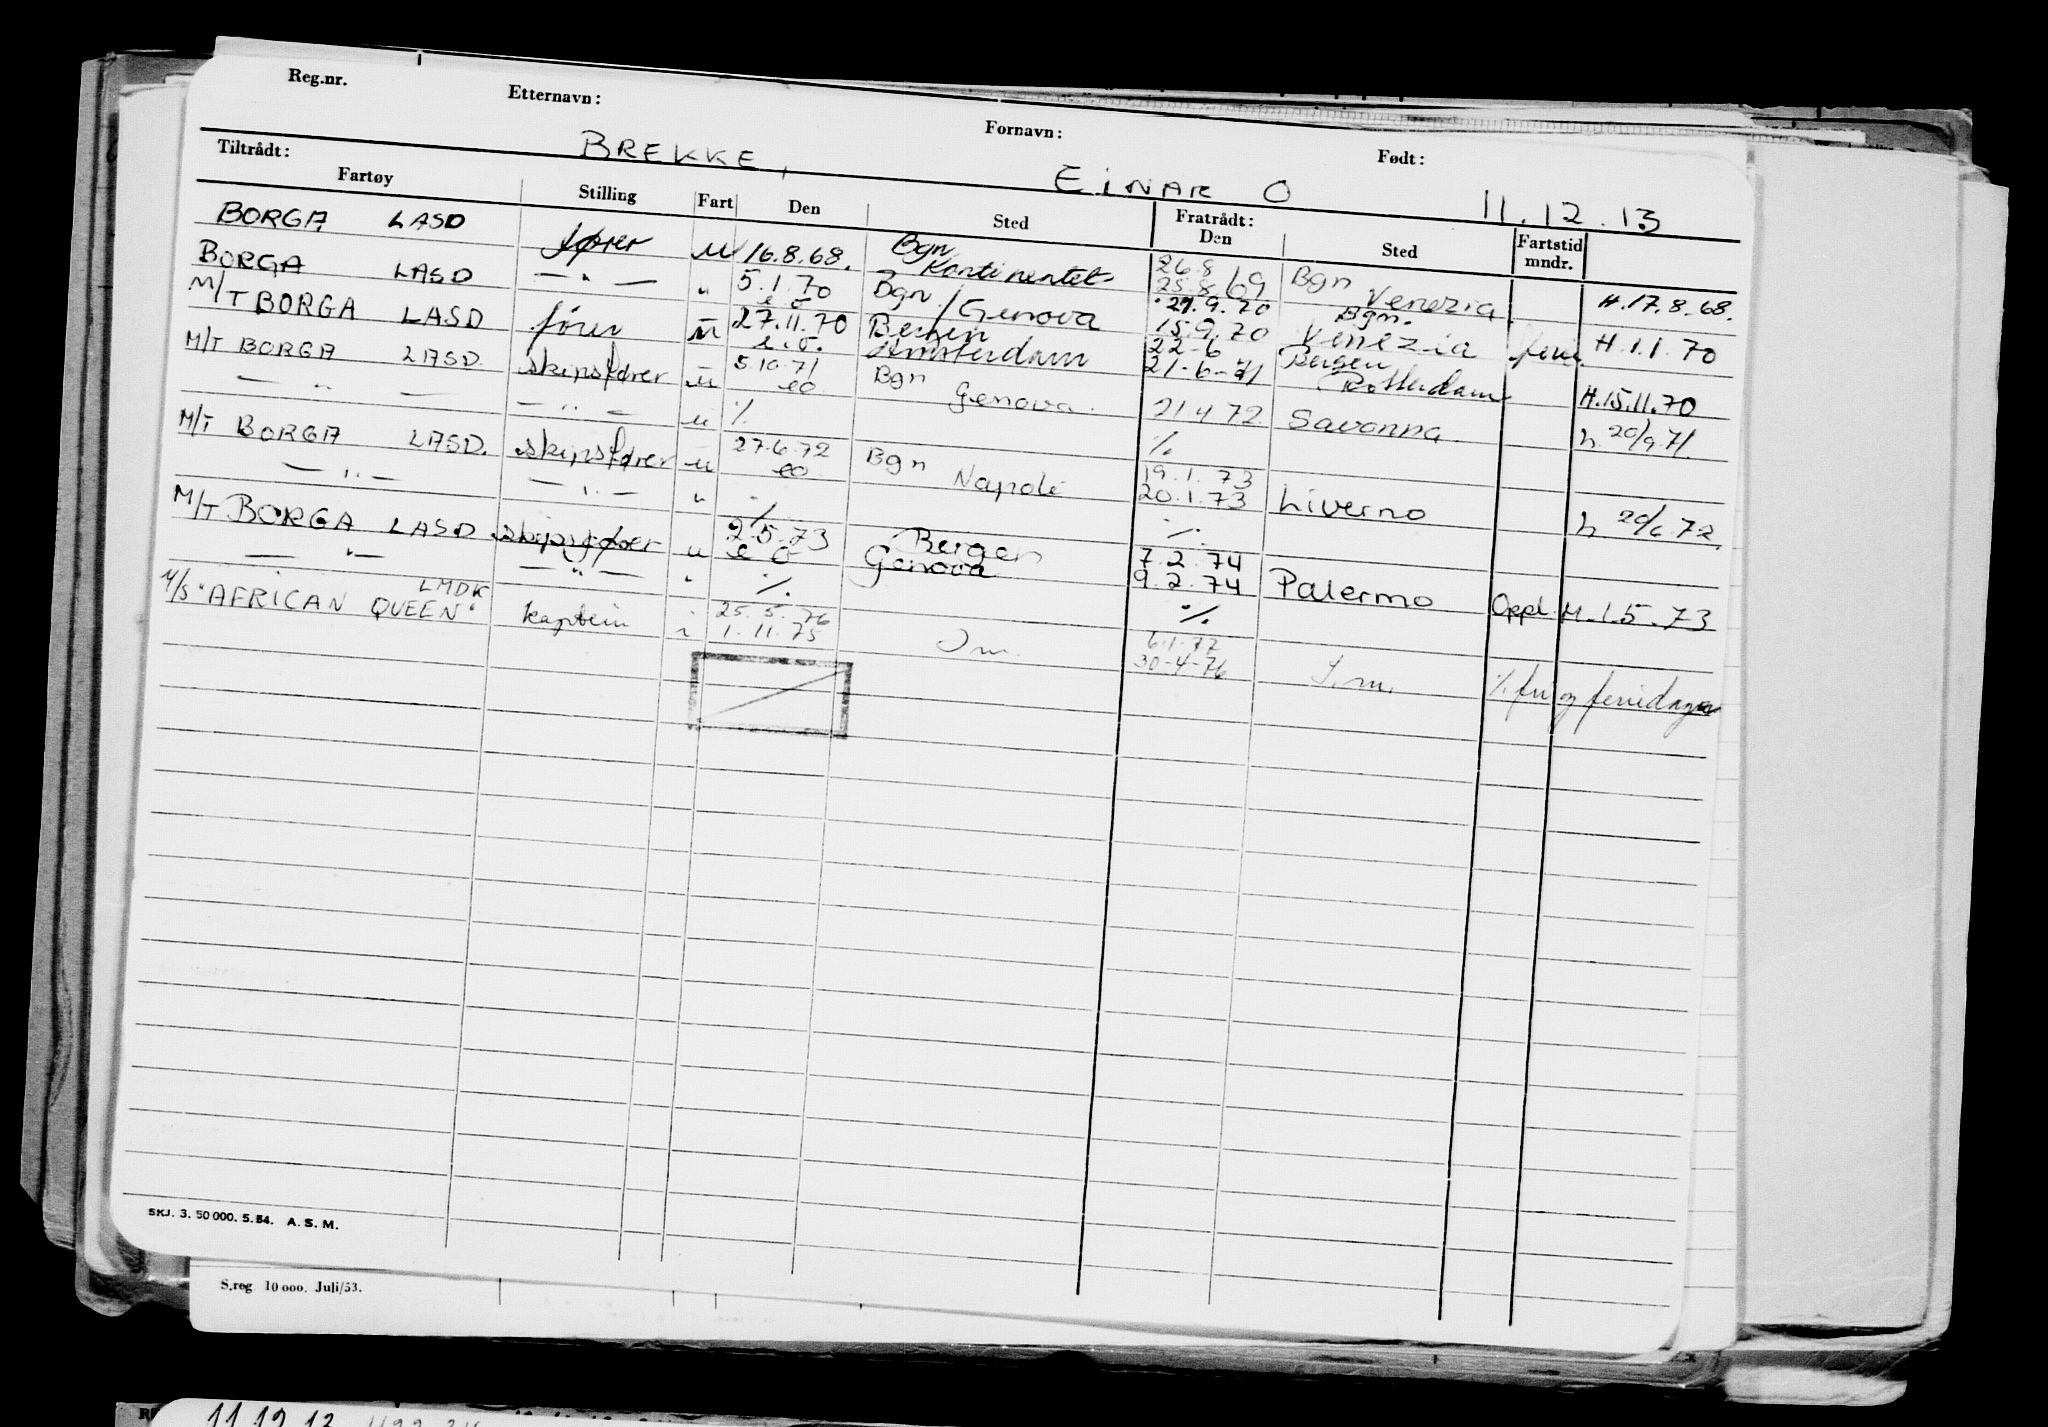 Reg.nr. Etternavn: Fornavn: Født:
BREKKE, EINAR O 11.12.13
Tiltrådt: Fratrådt:
Fartøy Stilling Fart Den Sted Den Sted Fartstid mndr.
BORGA LASD fører u 16.8.68. Bgn Kontinentet 26.8 25.8/69 Bgn Venezia H.17.8.68.
BORGA LASD — " — " 5.1.70 e o Bgn / Genova 21.9.70 15.9.70 Bgn. Venezia ferie H.1.1.70
M/T BORGA LASD fører u 27.11.70 e.o. Bergen Amsterdam 22-6 21-6-71 Bergen Rotterdam H.15.11.70
M/T BORGA LASD. skipsfører u 5.10.71 eo Bgn Genova. 21.4.72 Savonna h 20/9.71.
— " — — " — u %. %.
M/T BORGA LASD. skipsfører u 27.6.72 eo Bgn Napoli 19.1.73 20.1.73 Liverno h 20/6.72.
— " — — " — " %. %.
M/T BORGA LASD skipsfører u 2.5.73 e o Bergen Genova 7.2.74 9.2.74 Palermo Oppl. H.1.5.73
— " — — " — " %. %.
M/S "AFRICAN QUEEN" LMDK kaptein " 25.5.76 1.11.75 I.m. 6.1.77 30-4-76 I.m. %. fri og feriedager
SKJ. 3. 50 000. 5.54. A. S. M.
S.reg 10 000. Juli/53.
11.12.13